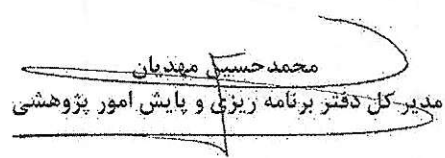 محمدحسین مهدیان
مدیر کل دفتر برنامه ریزی و پایش امور پژوهشی